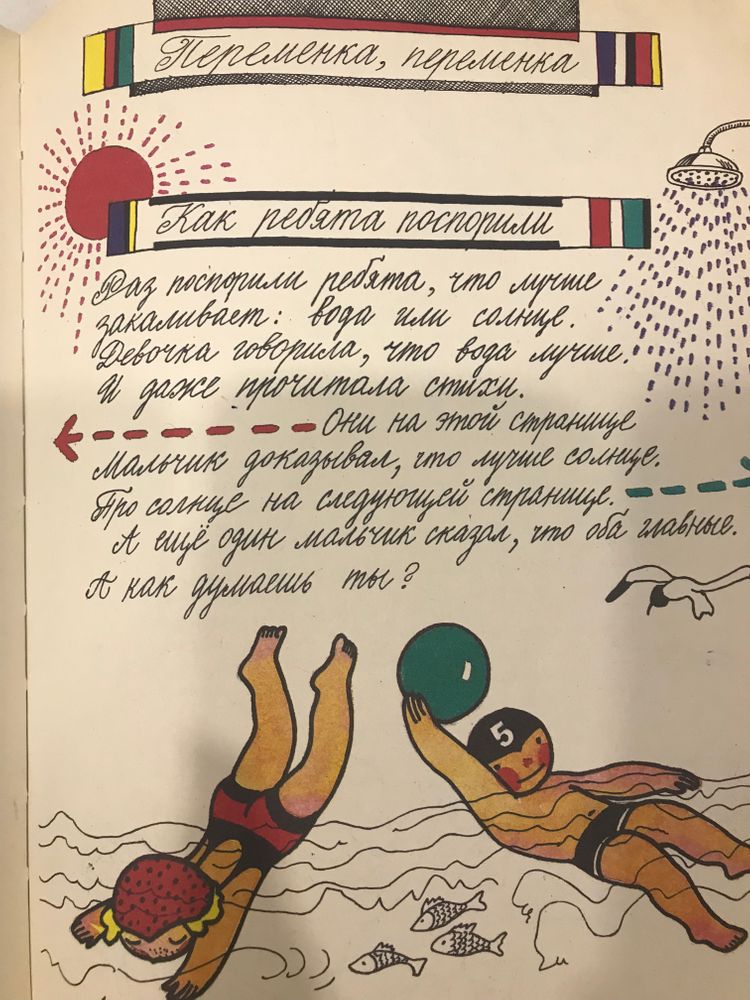 Переменка, переменка
Как ребята поспорили
Раз поспорили ребята, что лучше
закаливает: вода или солнце.
Девочка говорила, что вода лучше.
И даже прочитала стихи.
Они на этой странице
Мальчик доказывал, что лучше солнце.
Про солнце на следующей странице.
А ещё один мальчик сказал, что оба главные.
А как думаешь ты?
5